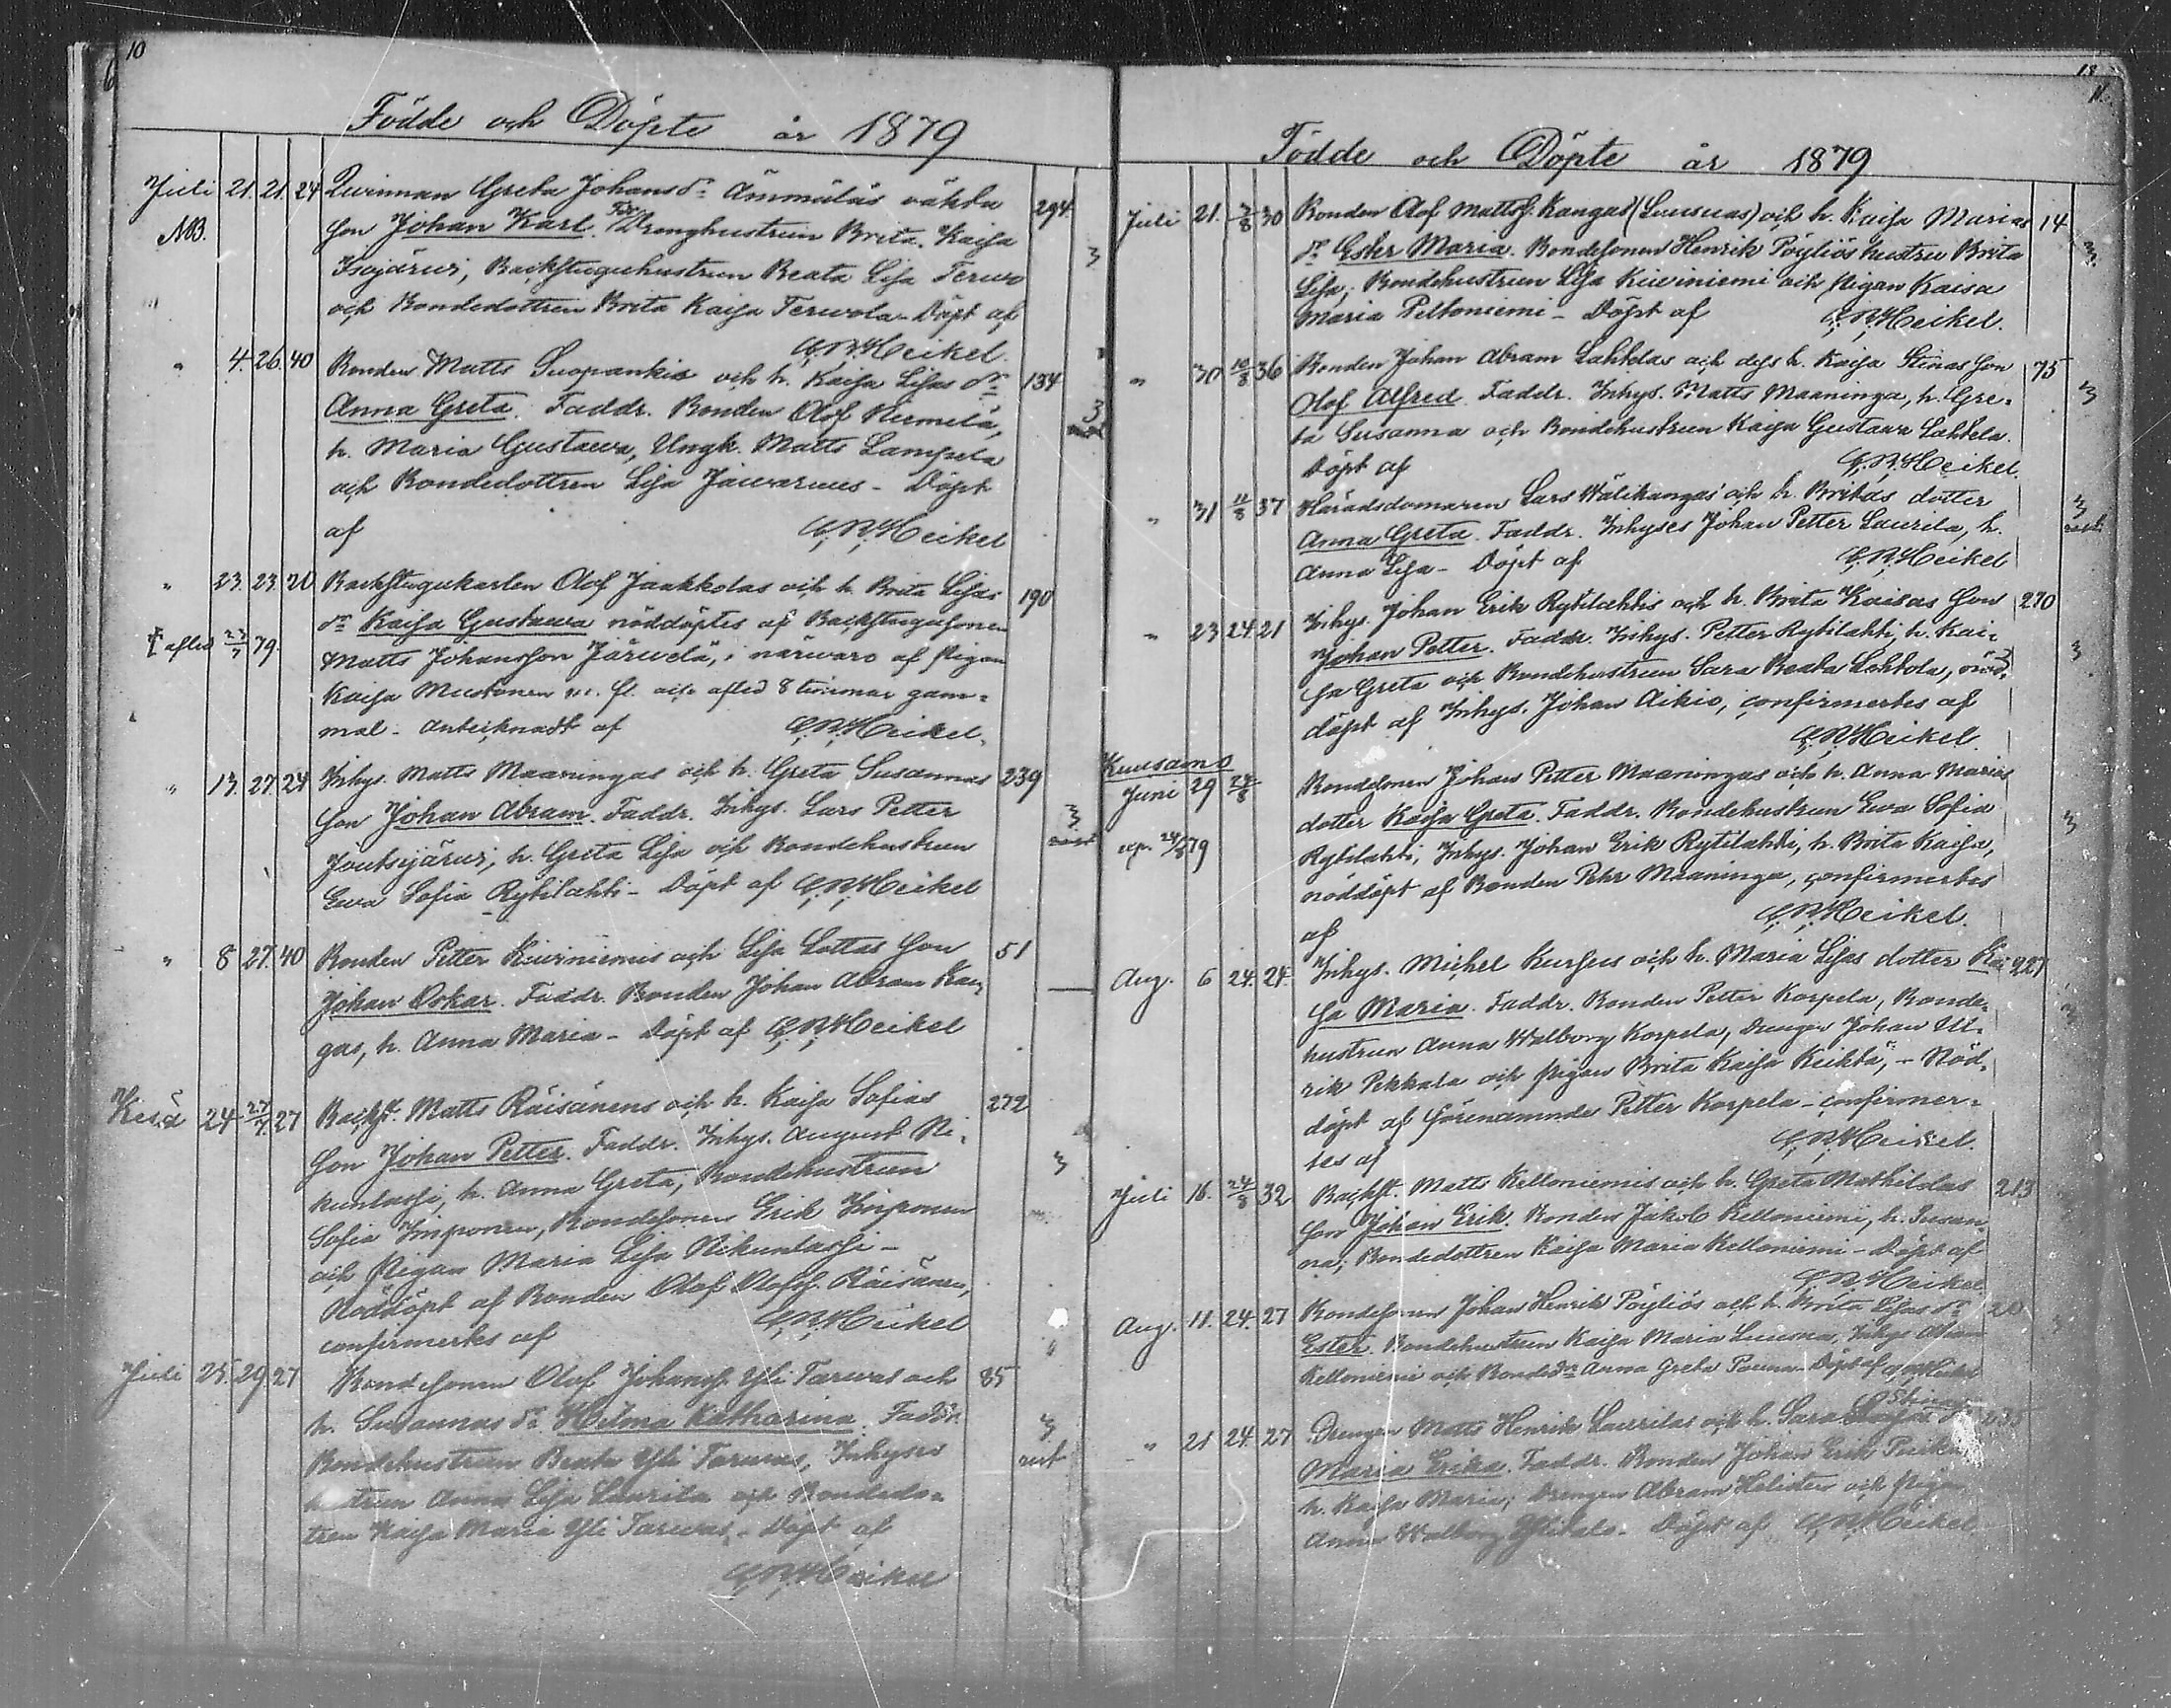 10
Födde och Döpte år 1879
Juli 21. 21. 24 Qvinnan Greta Johans dr Ämmäläs oäkta 294
NB. son Johan Karl. Fdr Dränghustrun Brita Kaisa 3
Isojärwi, Backstuguhustrun Beata Lisa Terwo
och Bondedottren Brita Kaisa Terwola - Döpt af
C. R. Heikel.
" 4. 26. 40 Bonden Matts Suopankis och h. Kaisa Lisas dr 134
Anna Greta. Faddr. Bonden Olof Niemelä, 3
h. Maria Gustawa, Ungk. Matts Lampela
och Bondedottren Lisa Jawarus - Döpt
af C. R. Heikel
" 23. 23. 20 Backstugukarlen Olof Jaakkolas och h. Brita Lisas 190
dr Kaisa Gustawa nöddöptes af Backstugusonen
† afled 23/7 79. Matts Johansson Järwelä, i närwaro af Pigan
Kaisa Mustonen m. fl. och afled 8 timmar gam-
mal - antecknadt af C. R. Heikel.
" 13. 27. 24 Inhys. Matts Maaningas och h. Greta Susannas 239
son Johan Abram. Faddr. Inhys. Lars Petter 3
Joutsijärwi, h. Greta Lisa och Bondehustrun
Ewa Sofia Rytilahti - Döpt af C. R. Heikel
" 8 27. 40 Bonden Petter Kiwiniemis och Lisa Lottas son 51
Johan Oskar. Faddr. Bonden Johan Abram Kan-
gas, h. Anna Maria - Döpt af C. R. Heikel
Kesä 24 27/7 27 Backst. Matts Räisänens och h. Kaisa Sofias 272
son Johan Petter. Faddr. Inhys. August Ni-
kunlassi, h. Anna Greta, Bondehustrun 3
Sofia Imponen, Bondesonen Erik Imponen
och Pigan Maria Lisa Nikunlassi -
Nöddöpt af Bonden Olof Olofss. Räisänen,
confirmertes af C. R. Heikel
Juli 25. 29 27 Bondesonen Olof Johanss. Yli Tarwas och 85
h. Susannas dr Hilma Katharina. Faddr. 3
Bondehustrun Beata Yli Tarwas, Inhyses
hustrun Anna Lisa Laurila och Bondedo-
tren Kaisa Maria Yli Tarwas - Döpt af
C. R. Heikel
18
11.
Födde och Döpte år 1879
Juli 21. 3/8 30 Bonden Olof Mattss. Kangas (Luusuas) och h. Kaisa Marias 14
dr Ester Maria. Bondesonen Henrik Pöyliös hustru Brita 3.
Lisa; Bondehustrun Lisa Kiwiniemi och Pigan Kaisa
Maria Peltoniemi - Döpt af C. R. Heikel.
" 30 10/8 36 Bonden Johan Abram Lahtelas och dess h. Kaisa Stinas son 75
Olof Alfred. Faddr. Inhys. Matts Maaninga, h. Gre- 3
ta Susanna och Bondehustrun Kaisa Gustawa Lahtela.
Döpt af C. R. Heikel.
" 31 11/8 37 Häradsdomaren Lars Wälikangas och h. Britas dotter 3
Anna Greta. Faddr. Inhyses Johan Petter Laurila, h.
Anna Lisa - Döpt af C. R. Heikel
" 23 24. 21 Inhys. Johan Erik Rytilahtis och h. Brita Kaisas son 270
Johan Petter. Faddr. Inhys. Petter Rytilahti, h. Kai- 3
sa Greta och Bondehustrun Sara Beata Lahtela, nöd-
döpt af Inhys. Johan Aikio, confirmertes af
C. R. Heikel.
Kuusamo
Juni 29 24/8 Bondesonen Johan Petter Maaningas och h. Anna Marias
dotter Kaisa Greta. Faddr. Bondehustrun Ewa Sofia 3
exp. 24/8 79 Rytilahti, Inhys. Johan Erik Rytilahti, h. Brita Kaisa,
nöddöpt af Bonden Pehr Maaninga, confirmertes
af C. R. Heikel.
Aug. 6 24. 24. Inhys. Michel Kursus och h. Maria Lisas dotter Kai 227
sa Maria. Faddr. Bonden Petter Korpela, Bonde-
hustrun Anna Walborg Korpela, Drengen Johan Ul-
rik Pekkala och Pigan Brita Kaisa Keikta, - Nöd-
döpt af förenämnde Petter Korpela - confirmer-
tes af C. R. Heikel.
Juli 16. 24/8 32 Backst. Matts Kelloniemis och h. Greta Mathildas 213
son Johan Erik. Bonden Jakob Kelloniemi, h. Susan-
na; Bondedottren Kaisa Maria Kelloniemi - Döpt af
C. R. Heikel
Aug. 11. 24. 27 Bondesonen Johan Henrik Pöyliös och h. Brita Lisas dr 20
Ester. Bondehustrun Kaisa Maria Luusua, Inhys Abram
Kelloniemi och Bondedr Anna Greta Pauna - Döpt af C. R. Heikel
" 21 24. 27 Drengen Matts Henrik Laurilas och h. Sara Stinas dr 235
Maria Erika. Faddr. Bonden Johan Erik
h. Kaisa Maria; Drengen Abram och Pigan
Anna Walborg - Döpt af C. R. Heikel.